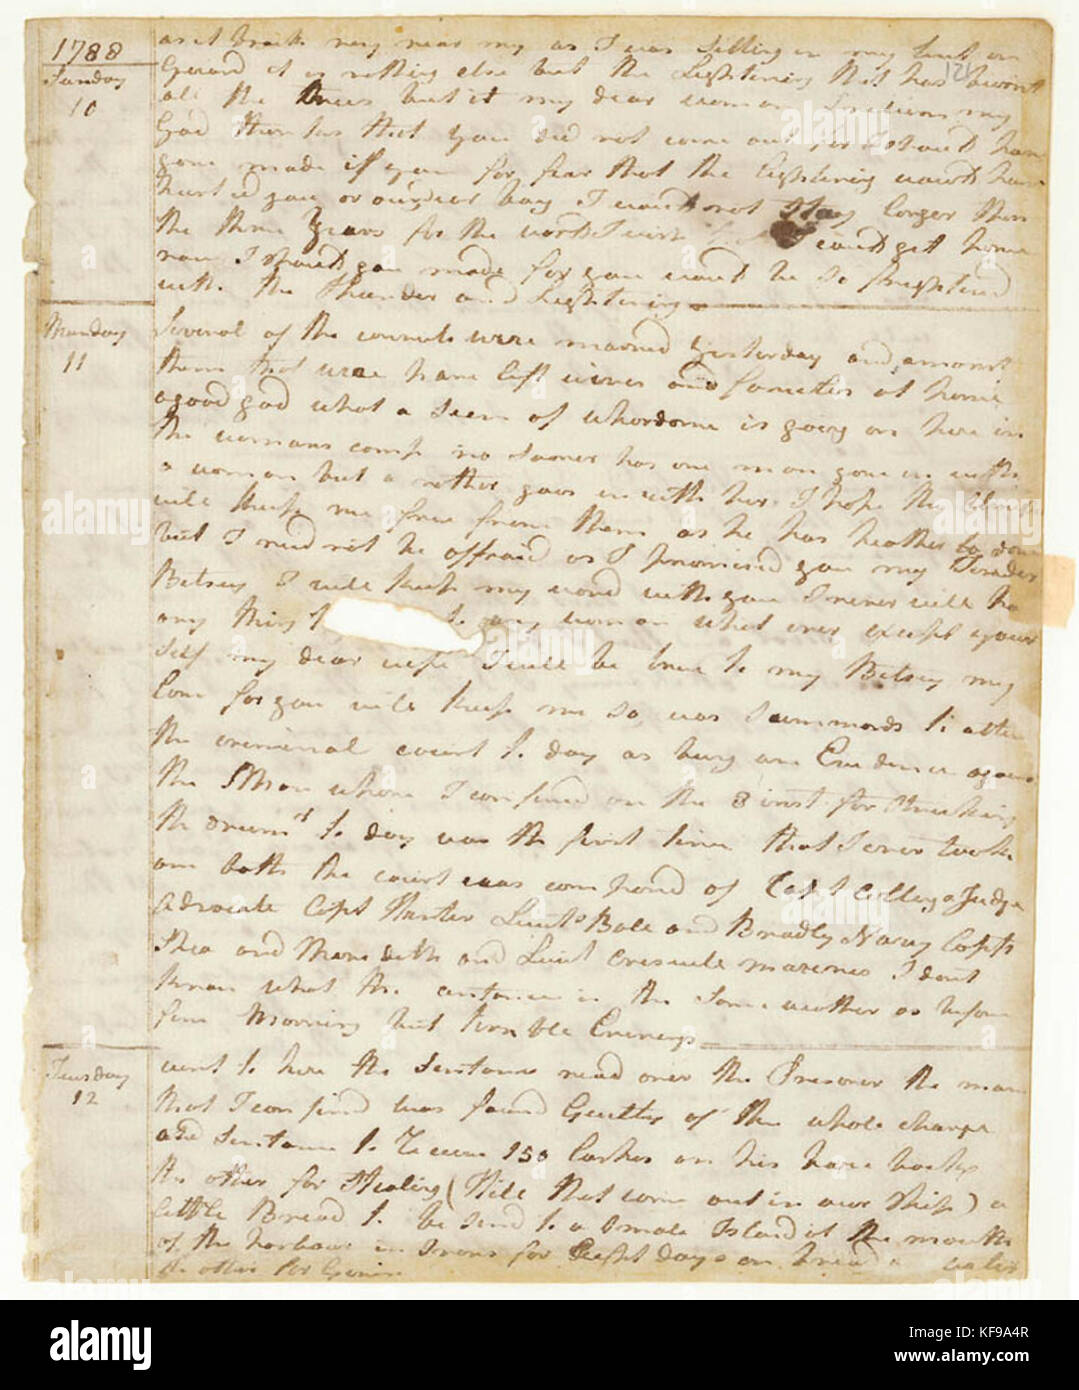 1788
Sunday
10
as it broke very near my as I was sitting in my tent on
Guard it is nothing else but the Lightening that has burnt
all the Trees but it my dear woman my
God then has that you did not come out for I should have
gone made if you for fear that the Lightening would have
hurt id you or our dear boy I would not Stay longer then
the three Years for the world I wish I could get home
now I should gou made for you would be so frightened
with the thunder and Lightening
Monday
11
Several of the convicts were married Yesterday and amonst
them that ware have left wives and families at home
agood god what a Seen of Whordome is going on here in
the womans camp no Sooner has one man gon in with
a woman but a nother goes in with her I hope the
will keep me free from them as he has heather to done
but I need not be affraid as I promised you my Tender
Betsey I will keep my word with you I never will have
any thing to any woman what ever except your
Self my dear wife I will be true to my Betsey my
Love for you will keep me so, was Summonds to atten
the criminal court to day as being an Evidence against
the Man whome I confined on the 8 inst for Striking
the drumr to day was the first time that I ever tooke
an oath the court was composed of Capt Collings Judge
Advocate Capt Hunter Lieuts Bale and Bradly Navy Capts
Shea and Maredeth and Lieut Creswele marines I dont
know what the centance is the Same weather as before
fine Morning but Terrable Evenings
Tuesday
12
went to here the Sentance read over the Presoner the man
that I confind was found Guilty of the whole charge
and Sentance to Receve 150 lashes on his bare back
the other for Stealing (Hill that come out in our Ship) a
little Bread to be Send to a Small Island at the mouth
of the harbour in Irons for Eight days on bread water
the other for Givin
alamy
Image ID: KF9A4R
www.alamy.com